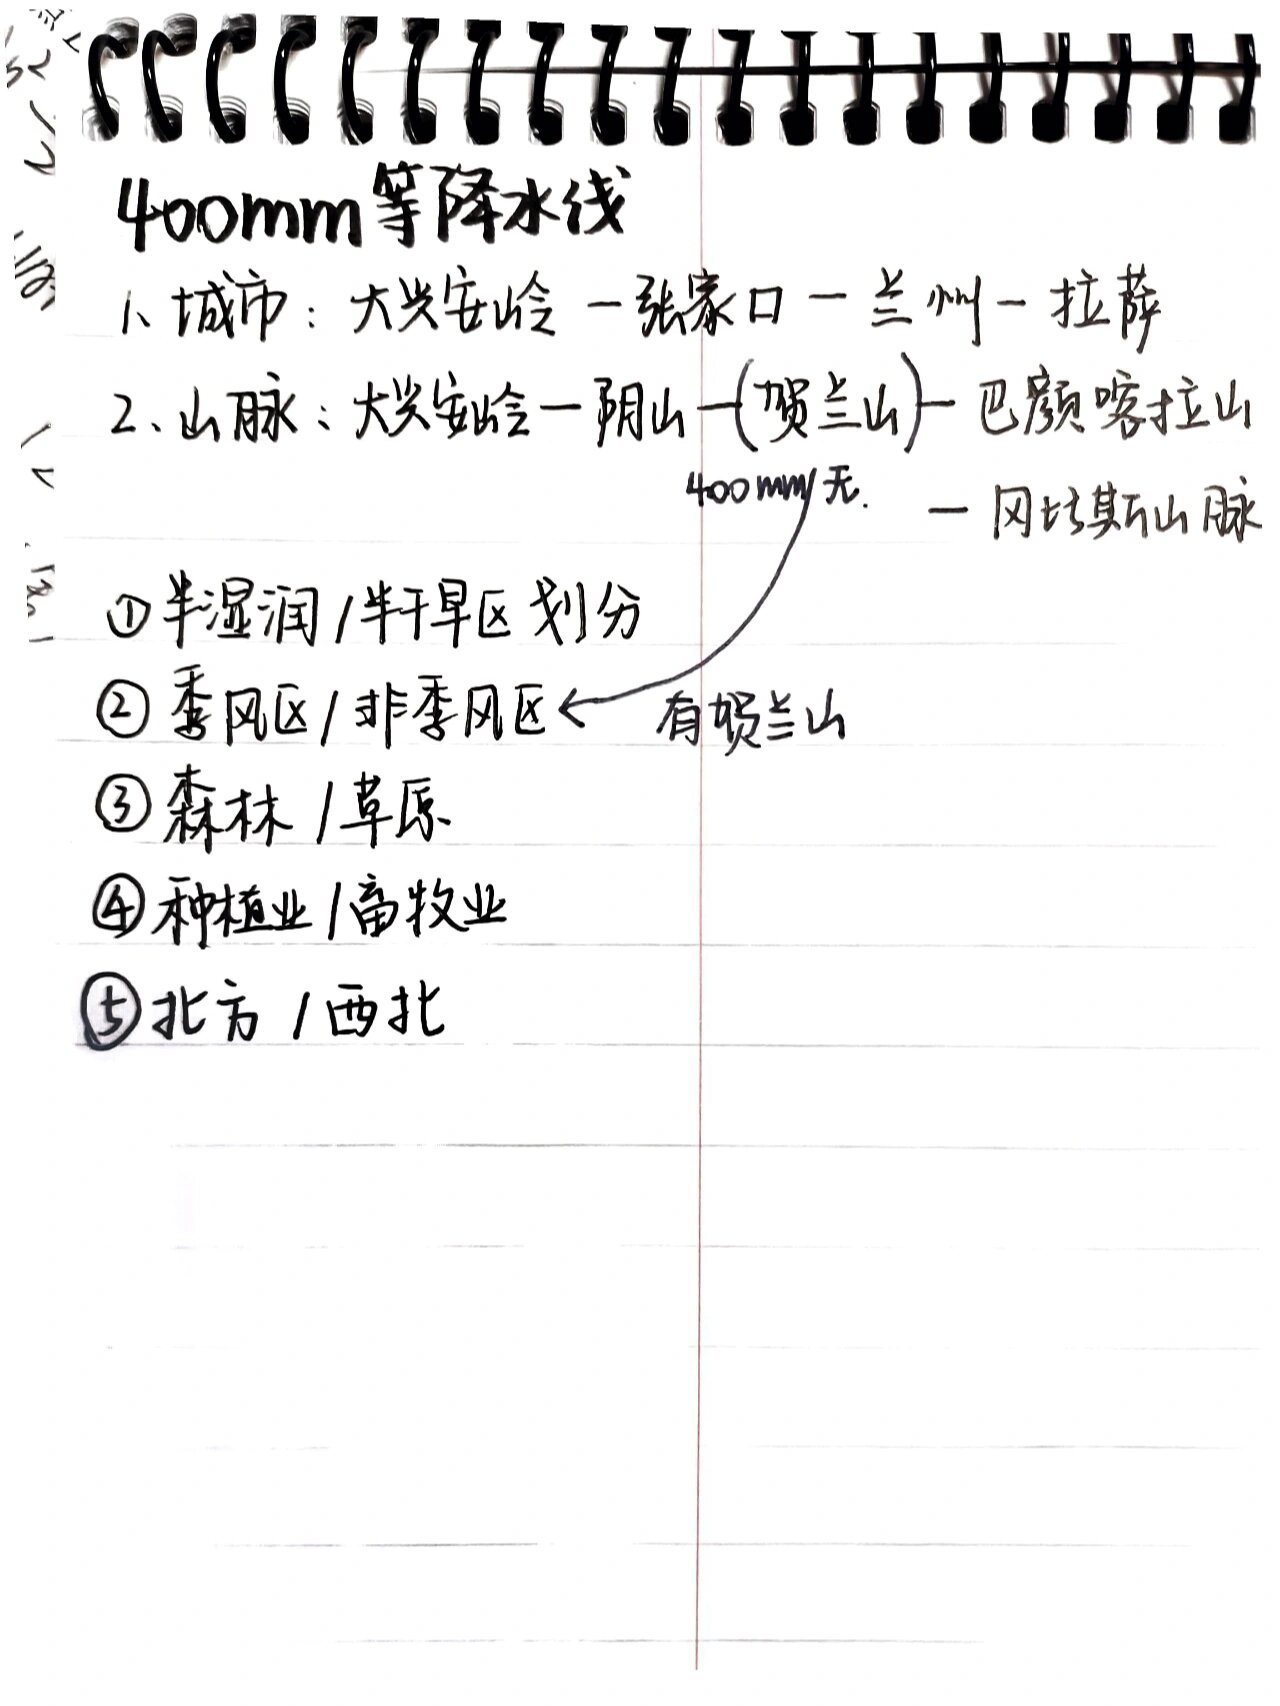 400mm等降水线
1、城市：大兴安岭－张家口－兰州－拉萨
2、山脉：大兴安岭－阴山－(贺兰山)－巴颜喀拉山
400mm无.
－冈底斯山脉
①半湿润/半干旱区划分
②季风区/非季风区← 有贺兰山
③森林/草原
④种植业/畜牧业
⑤北方/西北